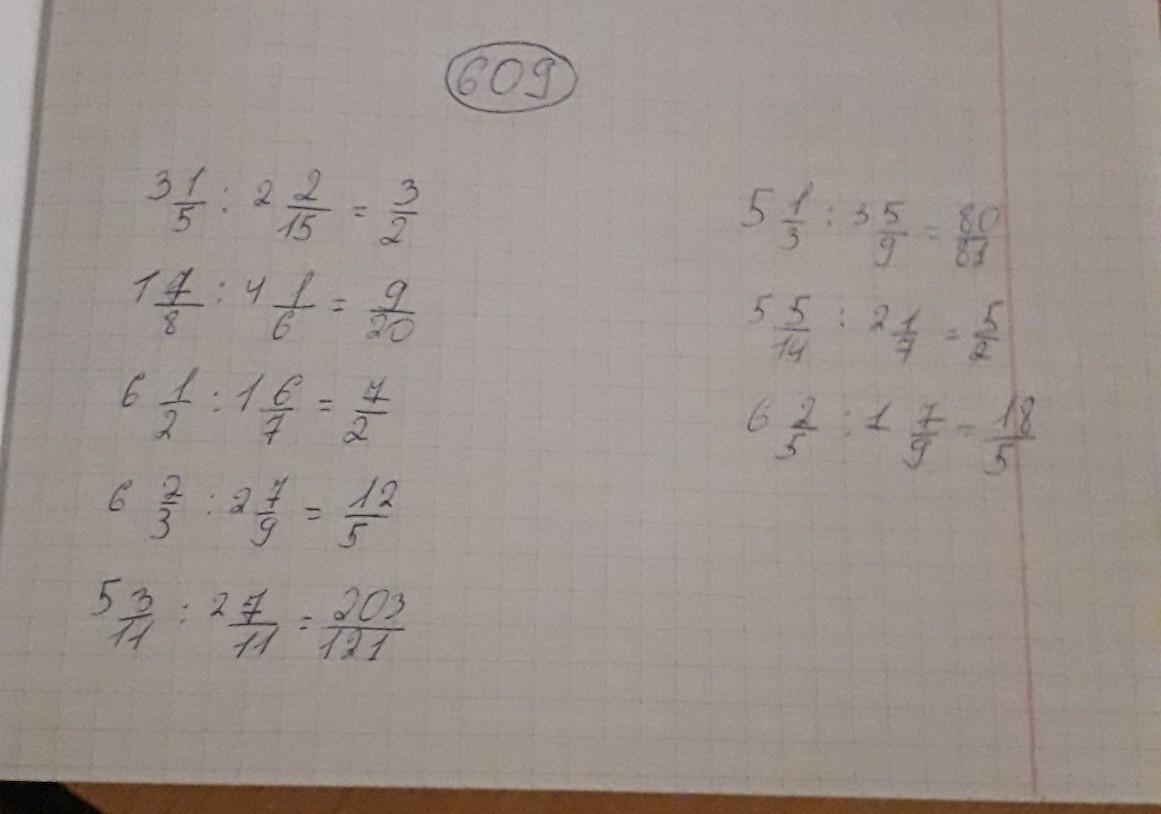 609
3 1/5 : 2 2/15 = 3/2
1 7/8 : 4 1/6 = 9/20
6 1/2 : 1 6/7 = 7/2
6 2/3 : 2 7/9 = 12/5
5 3/11 : 2 7/11 = 203/121
5 1/3 : 3 5/9 = 80/81
5 5/14 : 2 1/7 = 5/2
6 2/5 : 1 7/9 = 18/5